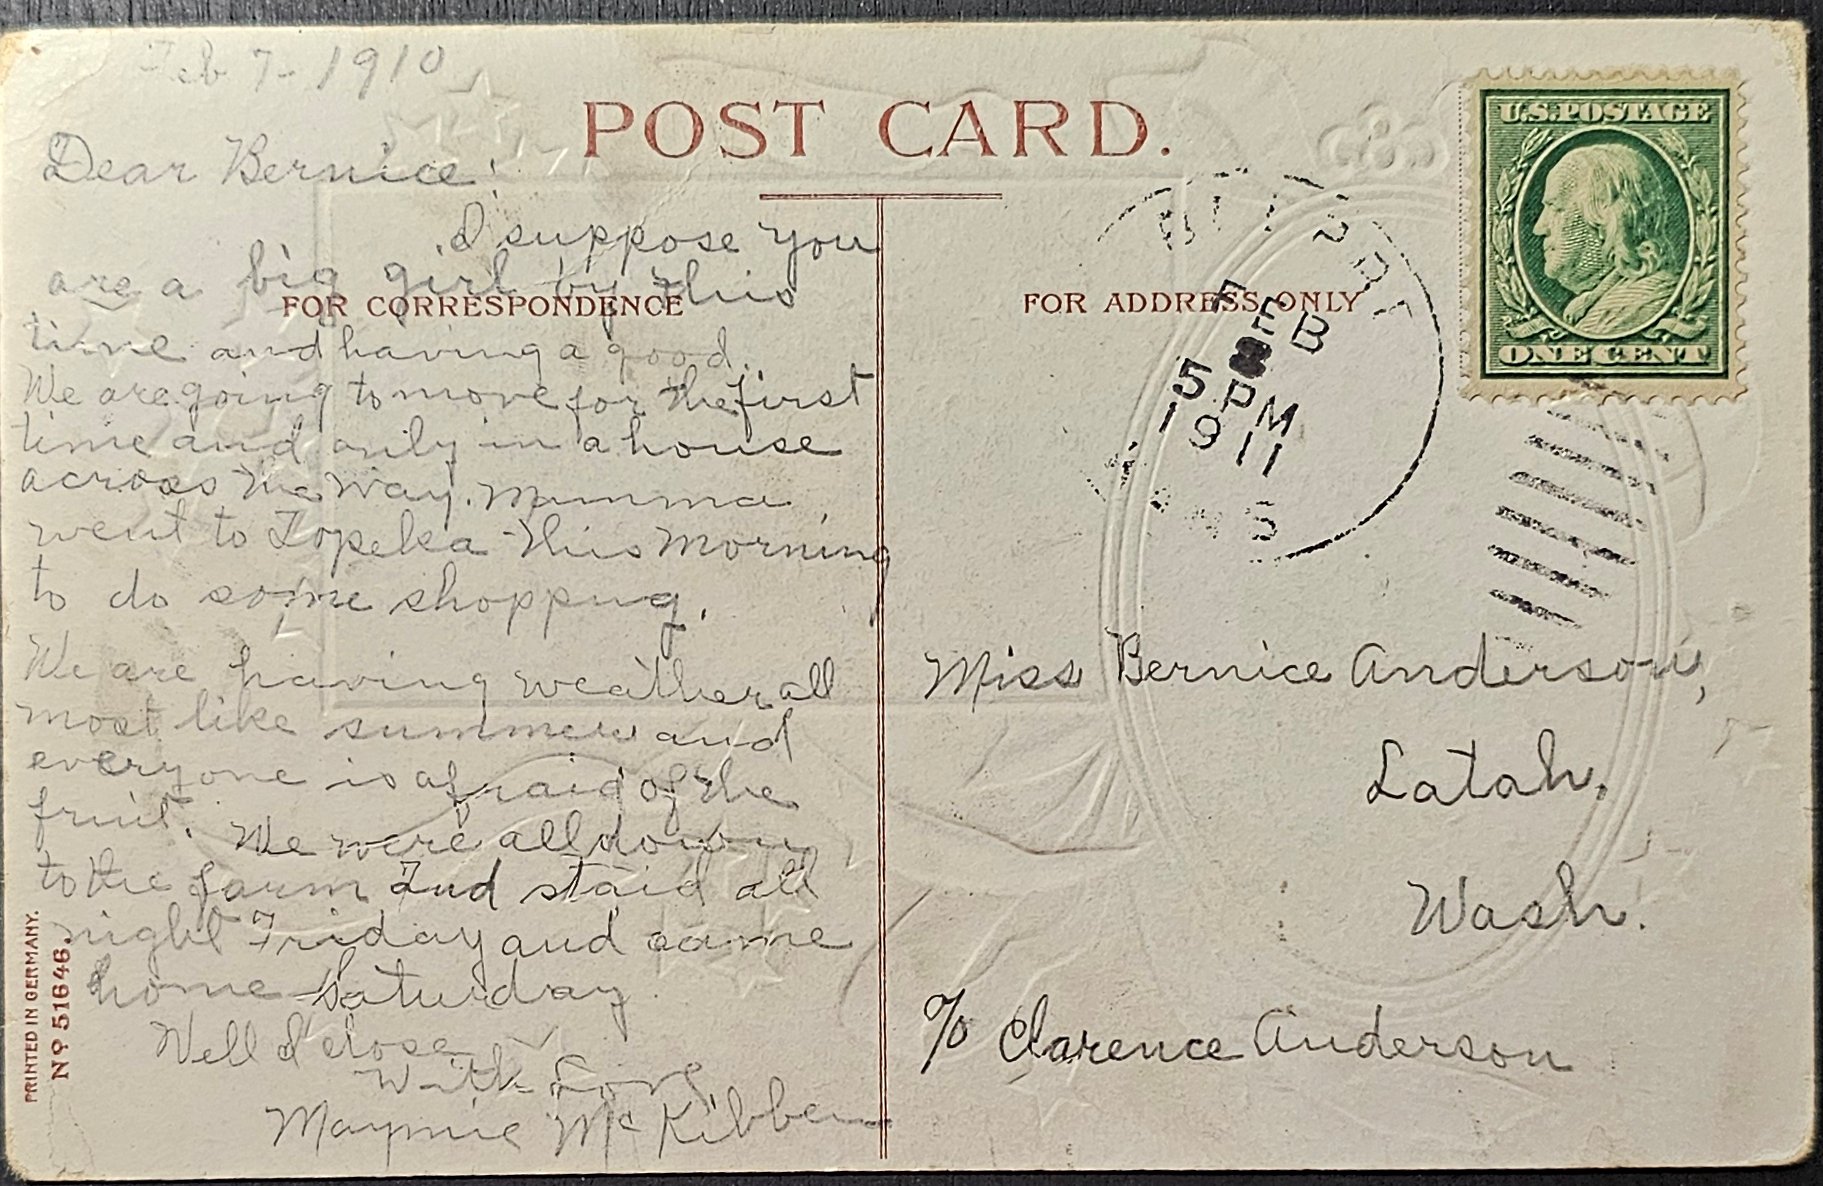 Feb 7 - 1910
POST CARD.
Dear Bernice:
I suppose you
are a big girl by this
FOR CORRESPONDENCE
time and having a good.
We are going to move for the first
time and only in a house
across the way. Mamma
went to Topeka this morning
to do some shopping.
We are having weather all
most like summer and
everyone is afraid of the
fruit. We were all down
to the farm and staid all
night Friday and came
home Saturday
Well I close
With Love
Maymie McKibben
PRINTED IN GERMANY.
No 51646.
U.S. POSTAGE
ONE CENT
FOR ADDRESS ONLY
FEB
5 PM
1911
KANS
Miss Bernice Anderson,
Latah,
Wash.
c/o Clarence Anderson